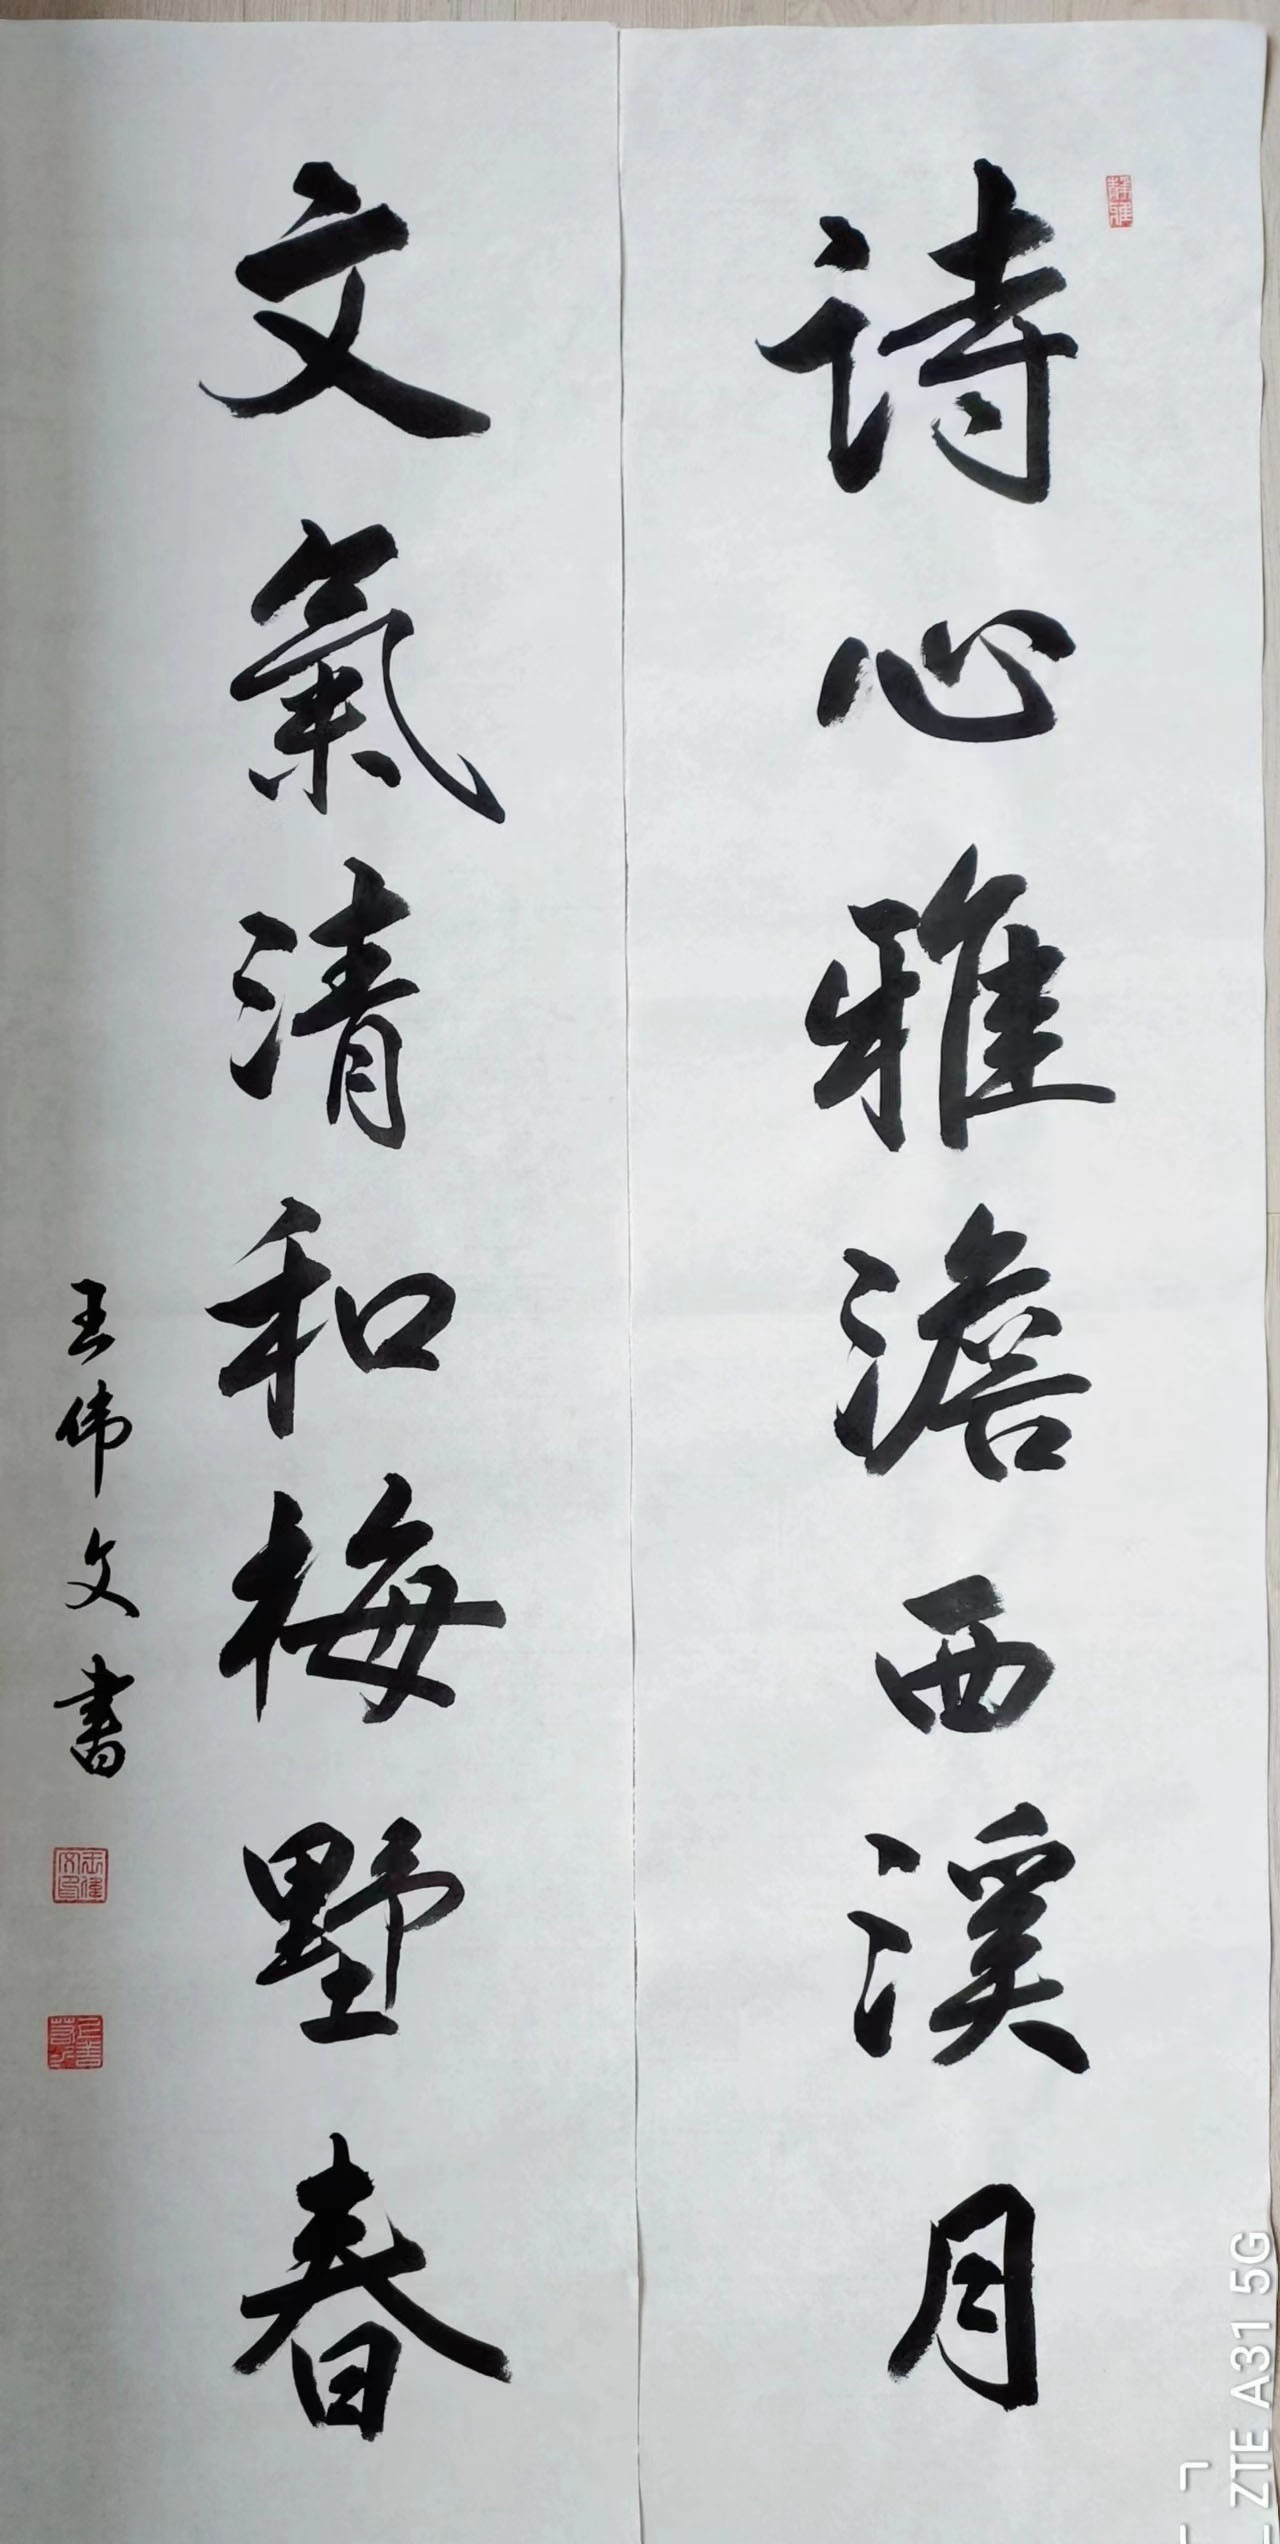 诗心雅澹西溪月
文氣清和梅墅春
王伟文書
ZTE A31 5G